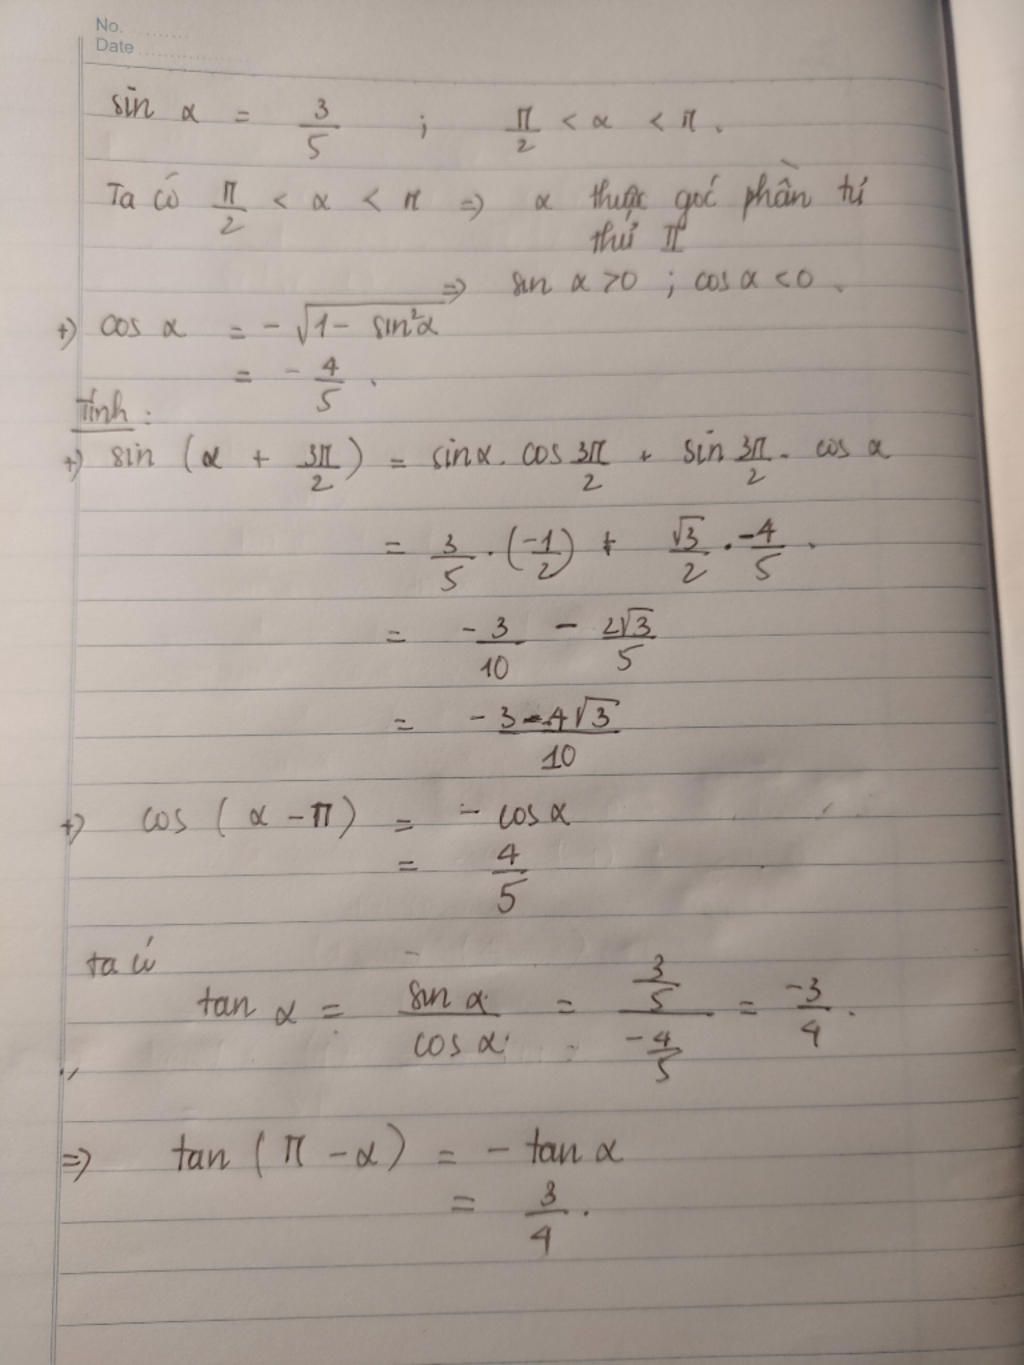 No. ........
Date ................
sin α = 3/5 ; π/2 < α < π.
Ta có π/2 < α < π => α thuộc góc phần tư
thứ II
=> sin α > 0 ; cos α < 0.
+) cos α = - √(1 - sin²α)
= - 4/5.
Tính :
+) sin (α + 3π/2) = sin α . cos 3π/2 + sin 3π/2 . cos α
= 3/5 . (-1/2) + √3/2 . -4/5.
= -3/10 - 2√3/5
= (-3-4√3)/10
+) cos (α - π) = - cos α
= 4/5
ta có
tan α = sin α/cos α = (3/5)/(-4/5) = -3/4.
=> tan (π - α) = - tan α
= 3/4.